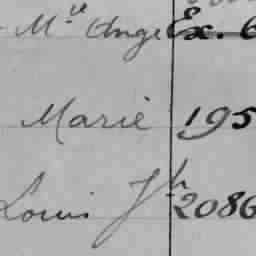 Mie Ange Ex. 6
Marie 195
Louis Jh 2086